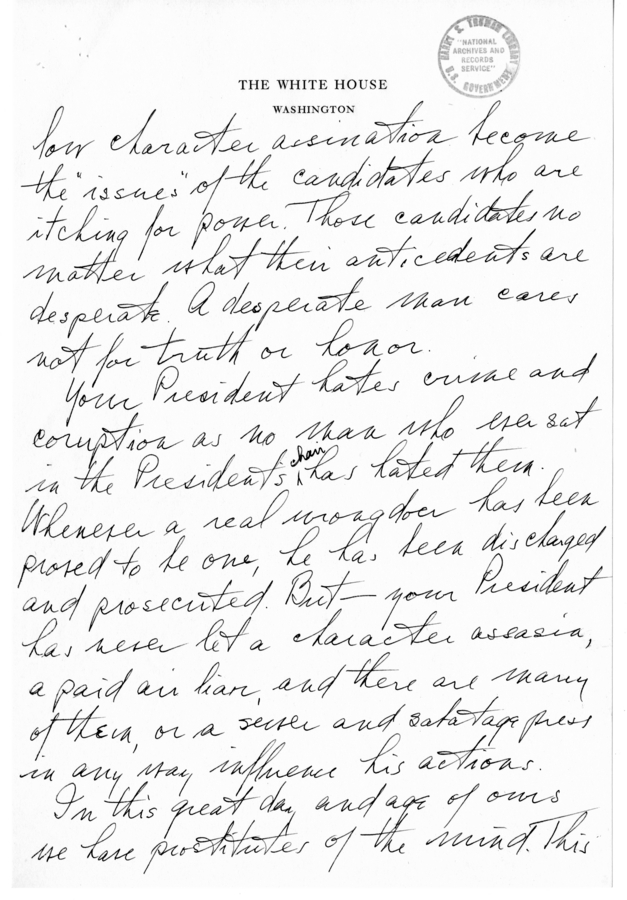 HARRY S. TRUMAN LIBRARY
"NATIONAL
ARCHIVES AND
RECORDS
SERVICE"
U.S. GOVERNMENT
THE WHITE HOUSE
WASHINGTON
low character assination become
the "issues" of the candidates who are
itching for power. Those candidates no
matter what their anticedents are
desperate. A desperate man cares
not for truth or honor.
Your President hates crime and
coruption as no man who ever sat
in the President's chair has hated them.
Whenever a real wrongdoer has been
proved to be one, he has been discharged
and prosecuted. But — your President
has never let a character assasin,
a paid air liar, and there are many
of them, or a sewer and sabatage press
in any way influence his actions.
In this great day and age of ours
we have prostitutes of the mind. This